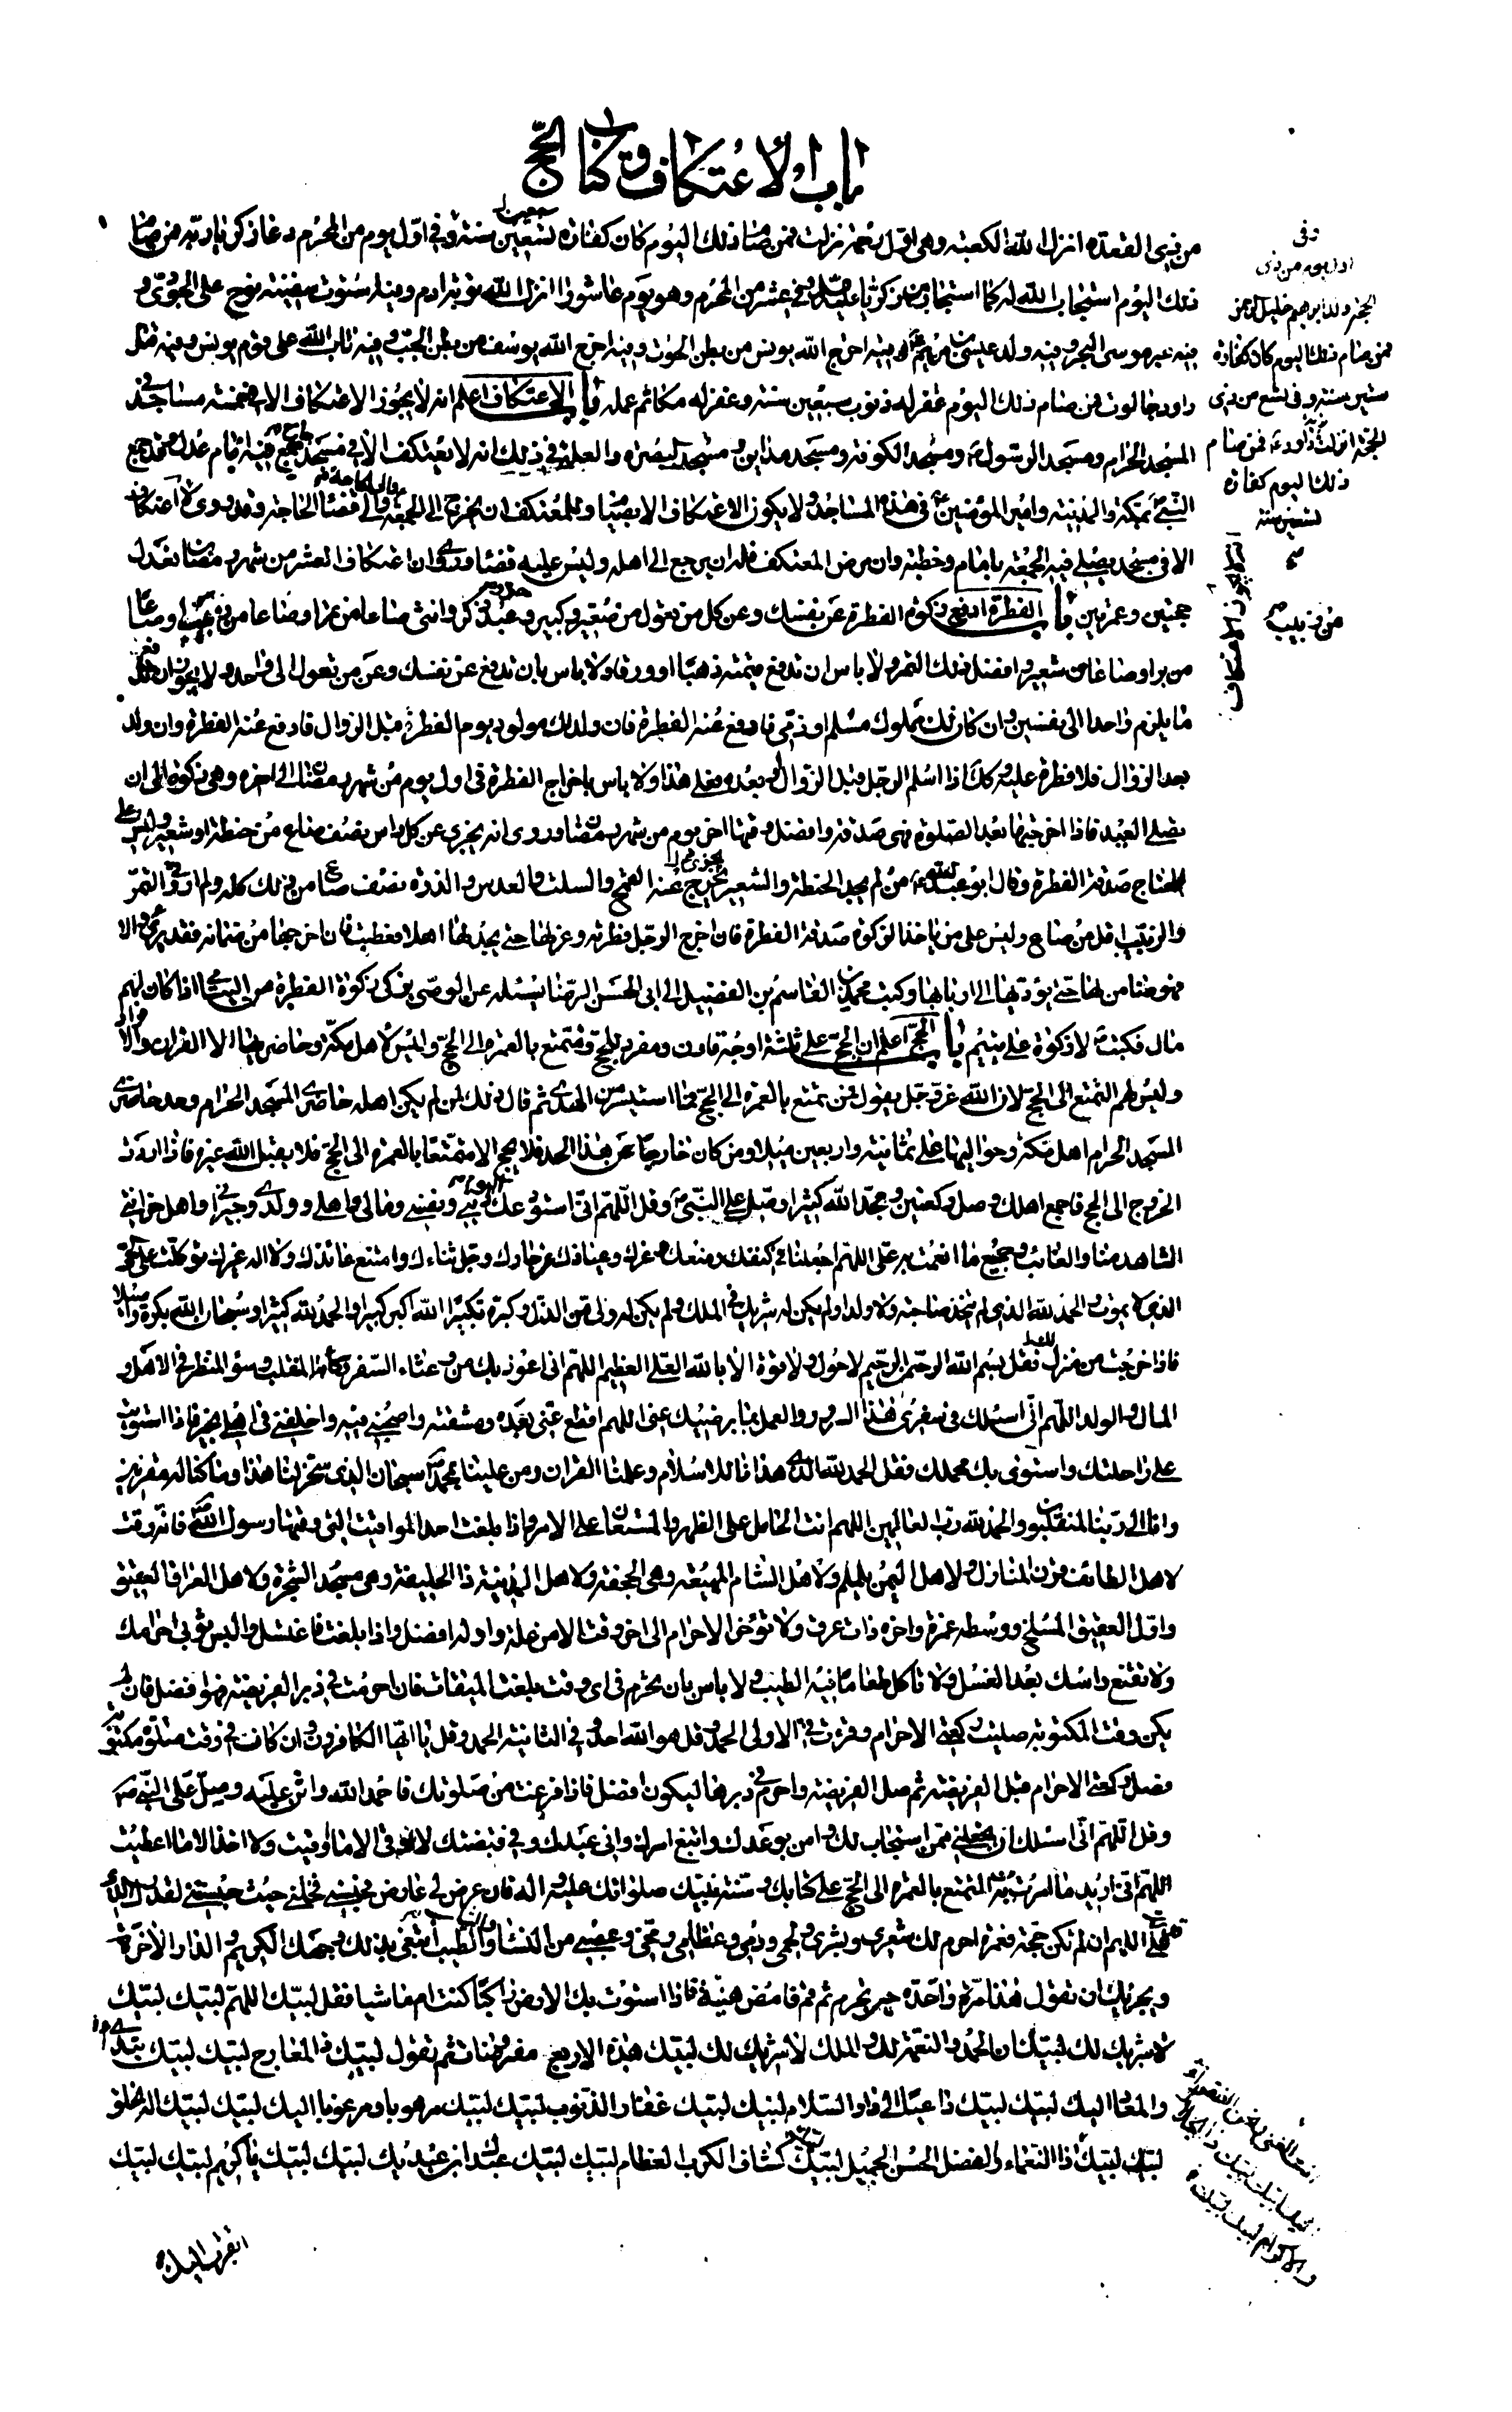 باب الاعتكاف وكتاب الحج
من ذي القعدة انزل الله الكعبة وهي اول رحمة نزلت فمن صام ذلك اليوم كان كفارة سبعين سنة وفي اول يوم من المحرم دعا زكريا ربه فمن صام
ذلك اليوم استجاب الله له كما استجاب من زكريا عليه السلام وفي عشر من المحرم وهو يوم عاشورا انزل الله توبة ادم وفيه استوت سفينة نوح على الجودي و
فيه عبر موسى البحر وفيه ولد عيسى بن مريم وفيه اخرج الله يونس من بطن الحوت وفيه اخرج الله يوسف من بطن الجب وفيه تاب الله على قوم يونس وفيه قتل
داود جالوت فمن صام ذلك اليوم غفر له ذنوب سبعين سنة وغفر له مكاتم عمله باب الاعتكاف اعلم انه لا يجوز الاعتكاف الا في خمسة مساجد في
المسجد الحرام ومسجد الرسول ومسجد الكوفة ومسجد مداين ومسجد البصرة والعلة في ذلك انه لا يعتكف الا في مسجد جامع جمع فيه امام عدل وقد جمع
النبي بمكة والمدينة وامير المؤمنين في هذه المساجد ولا يكون الاعتكاف الا بصيام وللمعتكف ان يخرج الى الجمعة والى قضاء الحاجة وقد روى لا اعتكاف
الا في مسجد يصلى فيه الجمعة بامام وخطبة وان مرض المعتكف فله ان يرجع الى اهله وليس عليه قضاء وروى ان اعتكاف العشر من شهر رمضان يعدل
حجتين وعمرتين باب الفطرة ادفع زكوة الفطرة عن نفسك وعن كل من تعول من صغير وكبير وحر وعبد ذكر وانثى صاعا من تمر او صاعا من زبيب او صاعا
من بر او صاعا من شعير وافضل ذلك التمر ولا باس ان تدفع قيمته ذهبا او ورقا ولا باس بان تدفع عن نفسك وعن من تعول الى واحد ولا يجوز ان تدفع
ما يلزم واحدا الى نفسين وان كان لك مملوك مسلم او ذمي فادفع عنه الفطرة فان ولد لك مولود يوم الفطرة قبل الزوال فادفع عنه الفطرة وان ولد
بعد الزوال فلا فطرة عليه وكك اذا اسلم الرجل قبل الزوال او بعده فعلى هذا ولا باس باخراج الفطرة في اول يوم من شهر رمضان الى اخره وهي زكوة الى ان
يصلى العيد فاذا اخرجتها بعد الصلوة فهي صدقة وافضل وقتها اخر يوم من شهر رمضان وروى انه يجزى عن كل راس نصف صاع من حنطة او شعير وليس على
المحتاج صدقة الفطرة وقال ابو عبد الله من لم يجد الحنطة والشعير يجزى عنه القمح والسلت والعدس والذرة نصف صاع من ذلك كله ولم ارو في التمر
والزبيب اقل من صاع وليس على من ياخذ الزكوة صدقة الفطرة فان اخرج الرجل فطرته وعزلها حتى يجد لها اهلا فعطبت فان اخرجها من ضمانه فقد برئ والا
فهو ضامن لها حتى يؤديها الى اربابها وكتب محمد بن القاسم بن الفضيل الى ابى الحسن الرضا يسئله عن الوصي يزكى زكوة الفطرة عن اليتامى اذا كان لهم مال
قال فكتب لا زكوة على يتيم باب الحج اعلم ان الحج على ثلثة اوجه قارن ومفرد للحج ومتمتع بالعمرة الى الحج وليس لاهل مكة وحاضريها الا القران والافراد
وليس لهم التمتع الى الحج لان الله عز وجل يقول فمن تمتع بالعمرة الى الحج فما استيسر من الهدي ثم قال ذلك لمن لم يكن اهله حاضري المسجد الحرام وحد حاضري
المسجد الحرام اهل مكة وحواليها على ثمانية واربعين ميلا ومن كان خارجا عن هذا الحد فلا يحج الا متمتعا بالعمرة الى الحج فلا يقبل الله غيره فاذا اردت
الخروج الى الحج فاجمع اهلك وصل ركعتين ومجد الله كثيرا وصل على النبي وقل اللهم اني استودعك اليوم ديني ونفسي ومالى واهلي وولدي وجيراني واهل حزانتي
الشاهد منا والغائب وجميع ما انعمت به علي اللهم اجعلنا في كنفك ومنعك وعزك وعياذك عز جارك وجل ثناءك وامتنع عائذك ولا اله غيرك توكلت على الحي
الذي لا يموت والحمد لله الذي لم يتخذ صاحبة ولا ولدا ولم يكن له شريك في الملك ولم يكن له ولي من الذل وكبره تكبيرا الله اكبر كبيرا والحمد لله كثيرا وسبحان الله بكرة واصيلا
فاذا خرجت من منزلك فقل بسم الله الرحمن الرحيم لا حول ولا قوة الا بالله العلي العظيم اللهم اني اعوذ بك من وعثاء السفر وكابة المنقلب وسوء المنظر في الاهل و
المال والولد اللهم اني اسئلك في سفري هذا السرور والعمل بما يرضيك عني اللهم اقطع عني بعده ومشقته واصحبني فيه واخلفني في اهلي بخير فاذا استويت
على راحلتك واستوى بك محملك فقل الحمد لله الذي هدانا للاسلام وعلمنا القران ومن علينا بمحمد سبحان الذي سخر لنا هذا وما كنا له مقرنين
وانا الى ربنا لمنقلبون والحمد لله رب العالمين اللهم انت الحامل على الظهر والمستعان على الامر واذا بلغت احد المواقيت التي وقتها رسول الله فانه وقت
لاهل الطائف قرن المنازل ولاهل اليمن يلملم ولاهل الشام المهيعة وهي الجحفة ولاهل المدينة ذا الحليفة وهي مسجد الشجرة ولاهل العراق العقيق
واول العقيق المسلخ ووسطه غمرة واخره ذات عرق ولا تؤخر الاحرام الى اخر وقت الا من علة واوله افضل واذا بلغت فاغتسل والبس ثوبي احرامك
ولا تقنع راسك بعد الغسل ولا تاكل طعاما فيه الطيب ولا باس بان يحرم في اي وقت بلغت الميقات فان احرمت في دبر الفريضة فهو افضل فان لم
يكن وقت المكتوبة صليت ركعتي الاحرام وقرات في الاولى الحمد وقل هو الله احد وفي الثانية الحمد وقل يا ايها الكافرون وان كانت في وقت صلوة مكتوبة
فصل ركعتي الاحرام قبل الفريضة ثم صل الفريضة واحرم في دبرها ليكون افضل فاذا فرغت من صلوتك فاحمد الله واثن عليه وصل على النبي
وقل اللهم اني اسئلك ان تجعلني ممن استجاب لك وامن بوعدك واتبع امرك واني عبدك وفي قبضتك لا اوقى الا ما وقيت ولا اخذ الا ما اعطيت
اللهم اني اريد ما امرت به التمتع بالعمرة الى الحج على كتابك وسنة نبيك صلواتك عليه واله فان عرض لي عارض يحبسني فحلني حيث حبستني لقدرك الذي
اللهم ان لم تكن حجة فعمرة احرم لك شعري وبشري ولحمي ودمي وعظامي ومخي وعصبي من النساء والطيب ابتغي بذلك وجهك الكريم والدار الاخرة
ويجزيك ان تقول هذا مرة واحدة حين تحرم ثم قم فامض هنيئة فاذا استوت بك الارض راكبا كنت ام ماشيا فقل لبيك اللهم لبيك لبيك
لا شريك لك لبيك ان الحمد والنعمة لك والملك لا شريك لك لبيك هذه الاربع مفروضات ثم تقول لبيك ذا المعارج لبيك لبيك تبدى
والمعاد اليك لبيك لبيك داعيا الى دار السلام لبيك لبيك غفار الذنوب لبيك لبيك مرهوبا ومرعوبا اليك لبيك لبيك اله الخلق
لبيك لبيك ذا النعماء والفضل الحسن الجميل لبيك كشاف الكرب العظام لبيك لبيك عبدك ابن عبديك لبيك لبيك يا كريم لبيك لبيك
اتقرب اليك
وفي
اول يوم من ذي
الحجة ولد ابرهيم خليل الرحمن
فمن صام ذلك اليوم كان كفارة
ستين سنة وفي تسع من ذي
الحجة انزلت توبة داود فمن صام
ذلك اليوم كفارة
تسعين سنة
من زبيب
انت الغني ونحن الفقراء
لبيك لبيك ذا الجلال
والاكرام لبيك لبيك